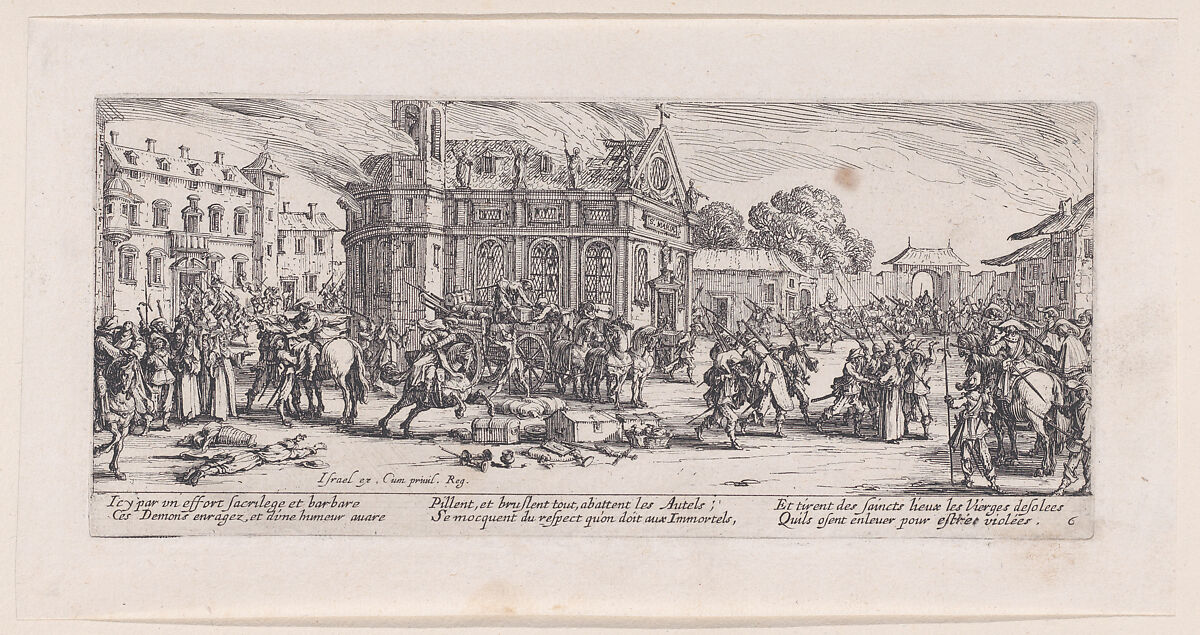 Israel ex. Cum priuil. Reg.
Icy par vn effort sacrilege et barbare
Ces Demons enragez, et d'vne humeur auare
Pillent, et bruslent tout, abattent les Autels ;
Se mocquent du respect quon doit aux Immortels,
Et tirent des saincts lieux les Vierges desolees
Quils osent enleuer pour estre violées .
6